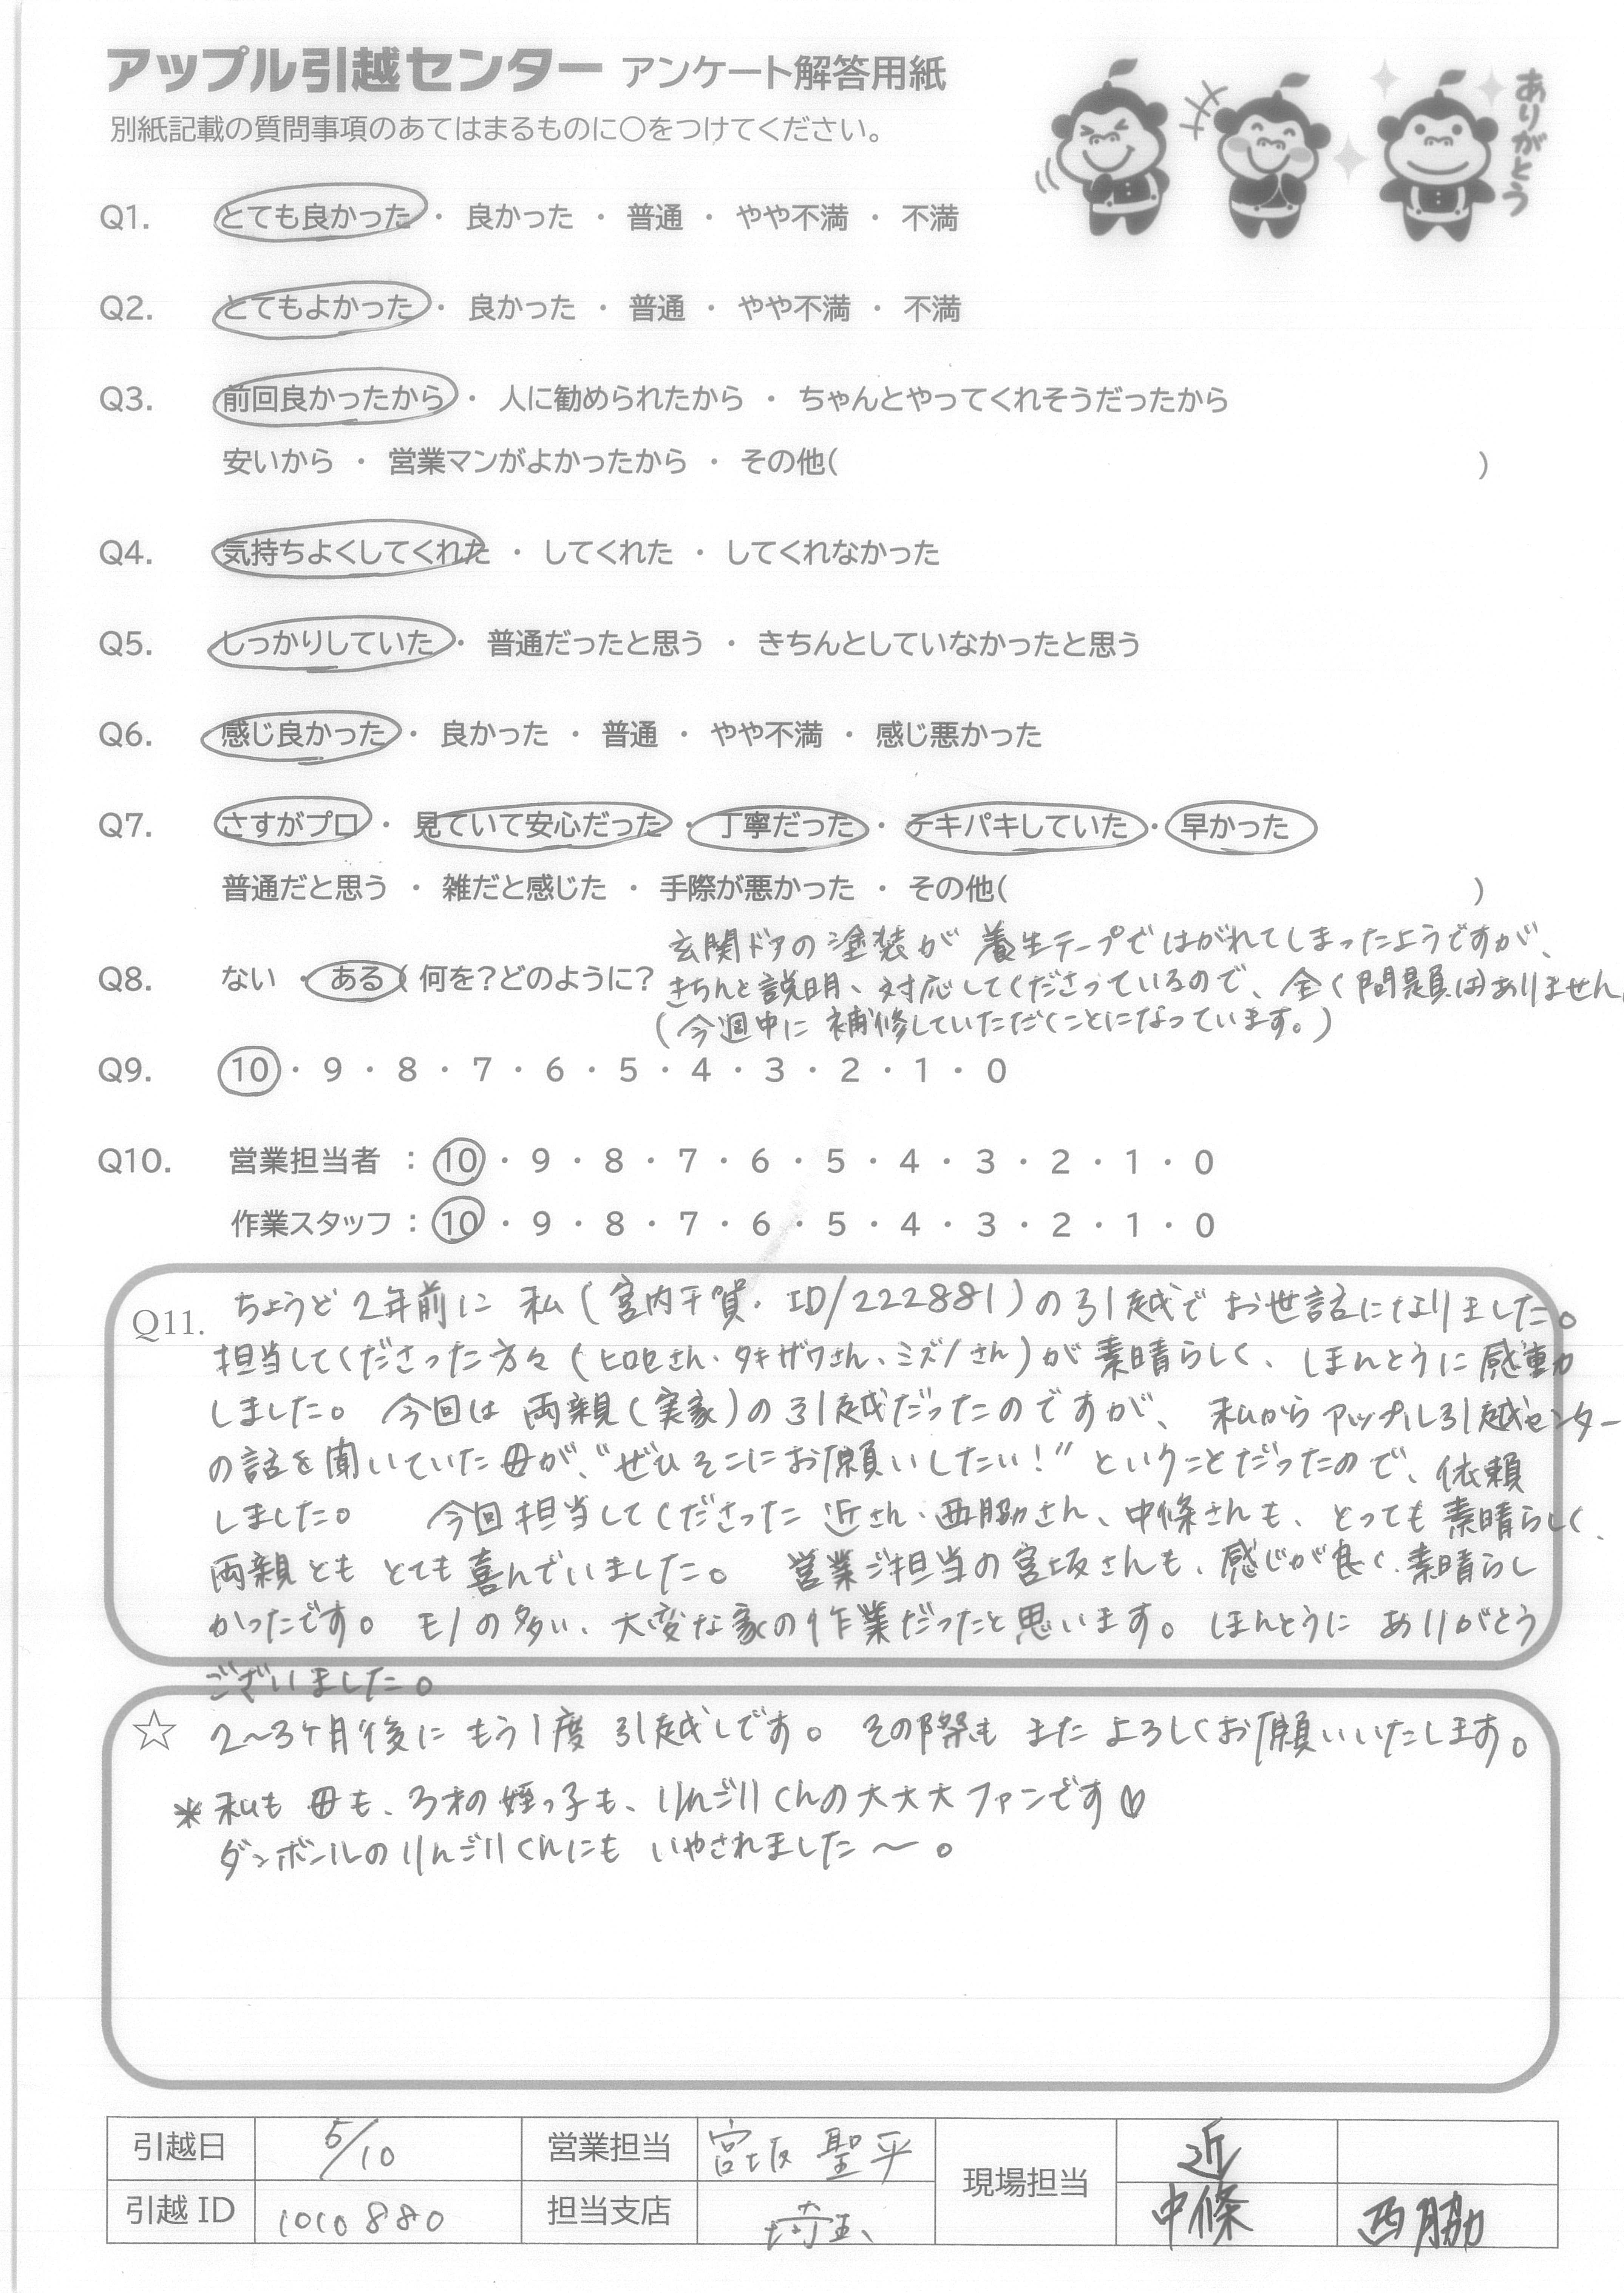 アップル引越センター アンケート解答用紙
別紙記載の質問事項のあてはまるものに〇をつけてください。
ありがとう
Q1. とても良かった ・ 良かった ・ 普通 ・ やや不満 ・ 不満
Q2. とてもよかった ・ 良かった ・ 普通 ・ やや不満 ・ 不満
Q3. 前回良かったから ・ 人に勧められたから ・ ちゃんとやってくれそうだったから
安いから ・ 営業マンがよかったから ・ その他( )
Q4. 気持ちよくしてくれた ・ してくれた ・ してくれなかった
Q5. しっかりしていた ・ 普通だったと思う ・ きちんとしていなかったと思う
Q6. 感じ良かった ・ 良かった ・ 普通 ・ やや不満 ・ 感じ悪かった
Q7. さすがプロ ・ 見ていて安心だった ・ 丁寧だった ・ テキパキしていた ・ 早かった
普通だと思う ・ 雑だと感じた ・ 手際が悪かった ・ その他( )
玄関ドアの塗装が養生テープではがれてしまったようですが、
Q8. ない ・ ある ( 何を?どのように? きちんと説明、対応してくださっているので、全く問題はありません。
(今週中に補修していただくことになっています。)
Q9. 10 ・ 9 ・ 8 ・ 7 ・ 6 ・ 5 ・ 4 ・ 3 ・ 2 ・ 1 ・ 0
Q10. 営業担当者 : 10 ・ 9 ・ 8 ・ 7 ・ 6 ・ 5 ・ 4 ・ 3 ・ 2 ・ 1 ・ 0
作業スタッフ : 10 ・ 9 ・ 8 ・ 7 ・ 6 ・ 5 ・ 4 ・ 3 ・ 2 ・ 1 ・ 0
Q11. ちょうど2年前に私(宮内千賀・ID/222881)の引越でお世話になりました。
担当してくださった方々(ヒロセさん・タキザワさん、ミズノさん)が素晴らしく、ほんとうに感動
しました。今回は両親(実家)の引越だったのですが、私からアップル引越センター
の話を聞いていた母が、"ぜひそこにお願いしたい!"ということだったので、依頼
しました。 今回担当してくださった近さん、西脇さん、中條さんも、とっても素晴らしく、
両親ともとても喜んでいました。 営業ご担当の宮坂さんも、感じが良く、素晴らし
かったです。モノの多い、大変な家の作業だったと思います。ほんとうにありがとう
ございました。
☆ 2~3ヶ月後にもう1度引越しです。その際もまたよろしくお願いいたします。
* 私も母も、3才の姪っ子も、りんごりくんの大大大ファンです♡
ダンボールのりんごりくんにもいやされました~。
引越日 5/10 営業担当 宮坂 聖平 現場担当 近
引越ID 1010880 担当支店 埼玉 中條 西脇